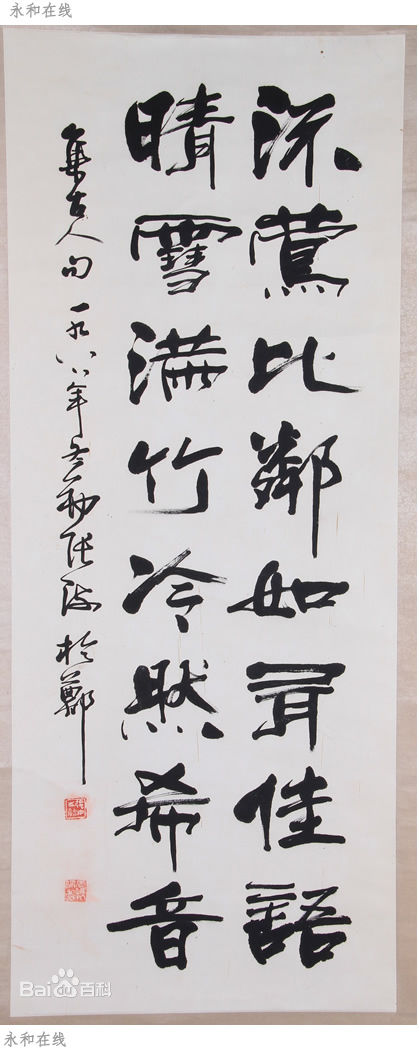 永和在线
流鶯比鄰如聞佳語
晴雪滿竹冷然希音
集古人句 一九八八年冬 張海 於鄭
Bai百科
永和在线